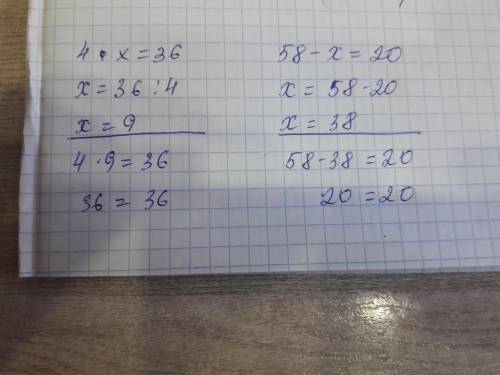 4 · x = 36
x = 36 : 4
x = 9
4 · 9 = 36
36 = 36
58 - x = 20
x = 58 - 20
x = 38
58 - 38 = 20
20 = 20